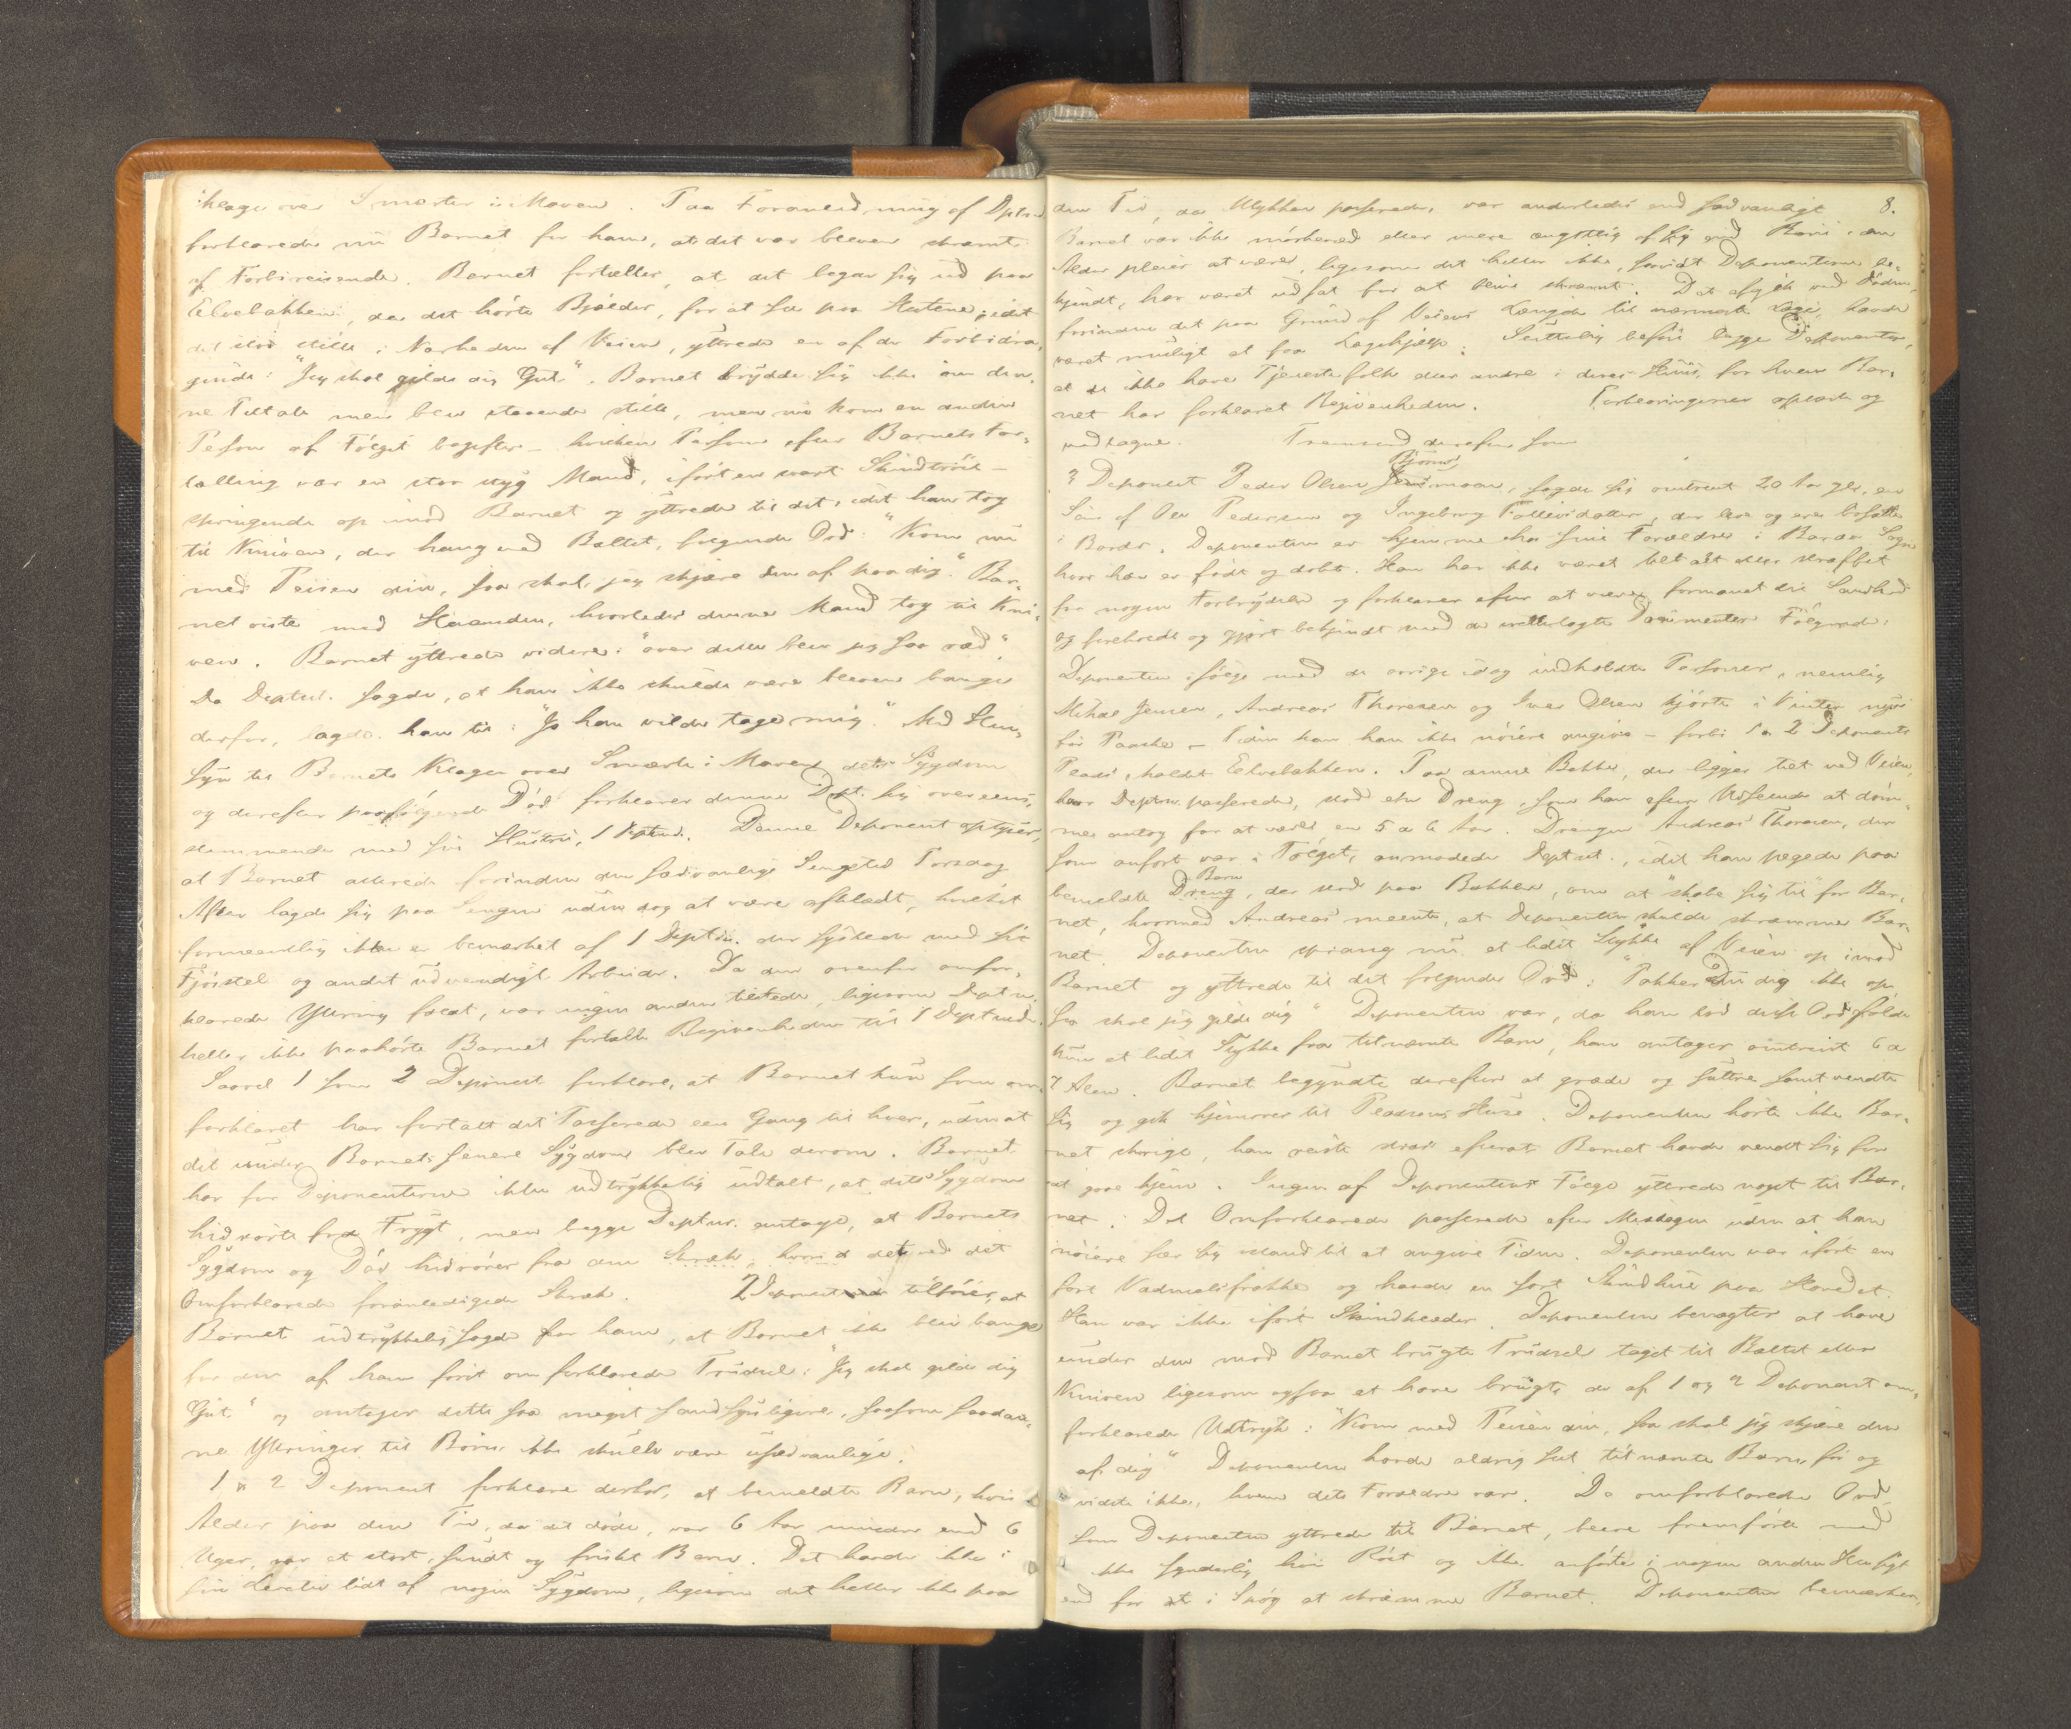 klage over Smerter i Maven. Paa Foranledning af Dptn.
forklarede nu Barnet for ham, at det var bleven skræmt
af Forbireisende. Barnet fortæller, at det begav sig ud paa
Elvebakken, da det hørte Bjælder, for at see paa Hestene; idet
det stod stille i Nærheden af Veien, yttrede en af de Forbidra-
gende: "Jeg skal gilde dig Gut". Barnet brydde sig ikke om den-
ne Tiltale men blev staaende stille, men nu kom en anden
Person af Følget bagefter – hvilken Person efter Barnets For-
tælling var en stor styg Mand, iført en svart Skindtrøie –
springende op imod Barnet og yttrede til det, idet han tog
til Kniven, der hang ved Beltet, følgende Ord: "Kom nu
med Peisen din, saa skal jeg skjære den af paa dig." Bar-
net viste med Haanden, hvorledes denne Mand tog til Kni-
ven. Barnet yttrede videre: "over dette blev jeg saa ræd".
Da Deptn. sagde, at han ikke skulde være bleven bange
derfor, sagde han til: "Jo han vilde tage mig." Med Hen-
syn til Barnets Klager over Smerte i Maven dets Sygdom
og derefter paafølgende Død forklarer denne Dpt. sig overeens-
stemmende med sin Hustru, 1 Deptn. Denne Deponent oplyser,
at Barnet allerede forinden den sædvanlige Sengetid Torsdag
Aften lagde sig paa Sengen uden dog at være afklædt, hvilket
formeentlig ikke er bemærket af 1 Deptn. der syslede med sit
Fjøsstel og andet udvendigt Arbeide. Da den ovenfor omfor-
klarede Yttring faldt, var ingen anden tilstede, ligesom Deptn.
heller ikke paahørte Barnet fortalte Begivenheden til 1 Deptnde.
Saavel 1 som 2 Deponent forklare, at Barnet kun som om-
forklaret har fortalt det Passerede een Gang til hver, uden at
det under Barnets senere Sygdom blev Tale derom. Barnet
har for Deponenterne ikke udtrykkelig udtalt, at dets Sygdom
hidrørte fra Frygt, men begge Deptnr. antage, at Barnets
Sygdom og Død hidrører fra den Skræk, hvori det ved det
Omforklarede foranledigede Skræk. 2 Deponent tilføier, at
Barnet udtrykkelig sagde for ham, at Barnet ikke blev bange
for den af ham først omforklarede Trudsel: "Jeg skal gilde dig
Gut" og antager dette saa meget sandsynligere, saasom saadan-
ne Yttringer til Børn ikke skulle være usædvanlige.
1 & 2 Deponent forklare derhos, at bemeldte Barn, hvis
Alder paa den Tid, da det døde, var 6 Aar mindre end 6
Uger, var et stort, sundt og friskt Barn. Det havde ikke i
sin Levetid lidt af nogen Sygdom, ligesom det heller ikke paa
8.
den Tid, da Ulykken passerede, var anderledes end sædvanligt
Barnet var ikke mørkeræd eller mere ængstlig af sig end Børn i den
Alder pleier at være, ligesom det heller ikke, saavidt Deponenterne be-
kjendt, har været udsat for at blive skræmt. Det afgik ved Døden,
forinden det paa Grund af Veiens Længde til nærmeste Læge, havde
været muligt at faa Lægehjælp. Sluttelig besvare begge Deponenter,
at de ikke have Tjenestefolk eller andre i deres Huus, for hvem Bar-
net har forklaret Begivenheden. Forklaringerne oplæst og
vedtagne. Fremstod derefter som
3 Deponent Peder Olsen Bjørnmoen, sagde sig omtrent 20 Aar gl., en
Søn af Ole Pedersen og Ingeborg Tollevsdatter, der leve og ere bosatte
i Bardo. Deponenten er hjemme hos sine Forældre i Bardo Sogn
hvor han er født og døbt. Han har ikke været tiltalt eller straffet
for nogen Forbrydelse og forklarer efter at være formanet til Sandhed
og foreholdt og gjort bekjendt med de irettelagte Documenter Følgende:
Deponenten i følge med de øvrige idag indkaldte Personer, nemlig
Mikal Jensen, Andreas Thoresen og Iver Olsen kjørte i Vinter nyss
før Paaske – Tiden kan han ikke nøiere angive – forbi 1 & 2 Deponents
Plads, kaldet Elvebakken. Paa denne Bakke, der ligger tet ved Veien,
hvor Deptn. passerede, stod etn Dreng, som han efter Udseende at døm-
me antog for at være en 5 a 6 Aar. Drengen Andreas Thoresen, der
som anført var i Følget, anmodede Deptn., idet han pegede paa
bemeldte Dreng Barn, der stod paa Bakken, om at "skabe sig til" for Bar-
net, hvormed Andreas meente, at Deponenten skulde skræmme Bar-
net. Deponenten sprang nu et lidet Stykke af Veien op imod
Barnet og yttrede til det følgende Ord: "Pakker Du dig ikke op,
saa skal jeg gilde dig" Deponenten var, da han lod disse Ord falde
kun et lidet Stykke fra titnævnte Barn, han antager omtrent 6 a
7 Alen. Barnet begyndte derefter at græde og sutre samt vendte
sig og gik hjemover til Pladsens Huse. Deponenten hørte ikke Bar-
net skrige, han reiste strax efterat Barnet havde vendt sig for
at gaae hjem. Ingen af Deponentens Følge yttrede noget til Bar-
net. Det Omforklarede passerede efter Middagen uden at han
nøiere ser sig istand til at angive Tiden. Deponenten var iført en
sort Vadmelsfrakke og havde en sort Skindhue paa Hovedet.
Han var ikke iført Skindklæder. Deponenten benægter at have
under den mod Barnet brugte Trudsel taget til Beltet eller
Kniven ligesom ogsaa at have brugt de af 1 og 2 Deponent om-
forklarede Udtryk: "Kom med Peisen din, saa skal jeg skjære den
af dig" Deponenten havde aldrig set titnævnte Barn før og
vidste ikke, hvem dets Forældre var. De omforklarede Ord
som Deponenten yttrede til Barnet, bleve fremførte med
ikke synderlig høi Røst og ikke anførte i nogen anden Hensigt
end for at i Spøg at skræmme Barnet. Deponenten bemærker,